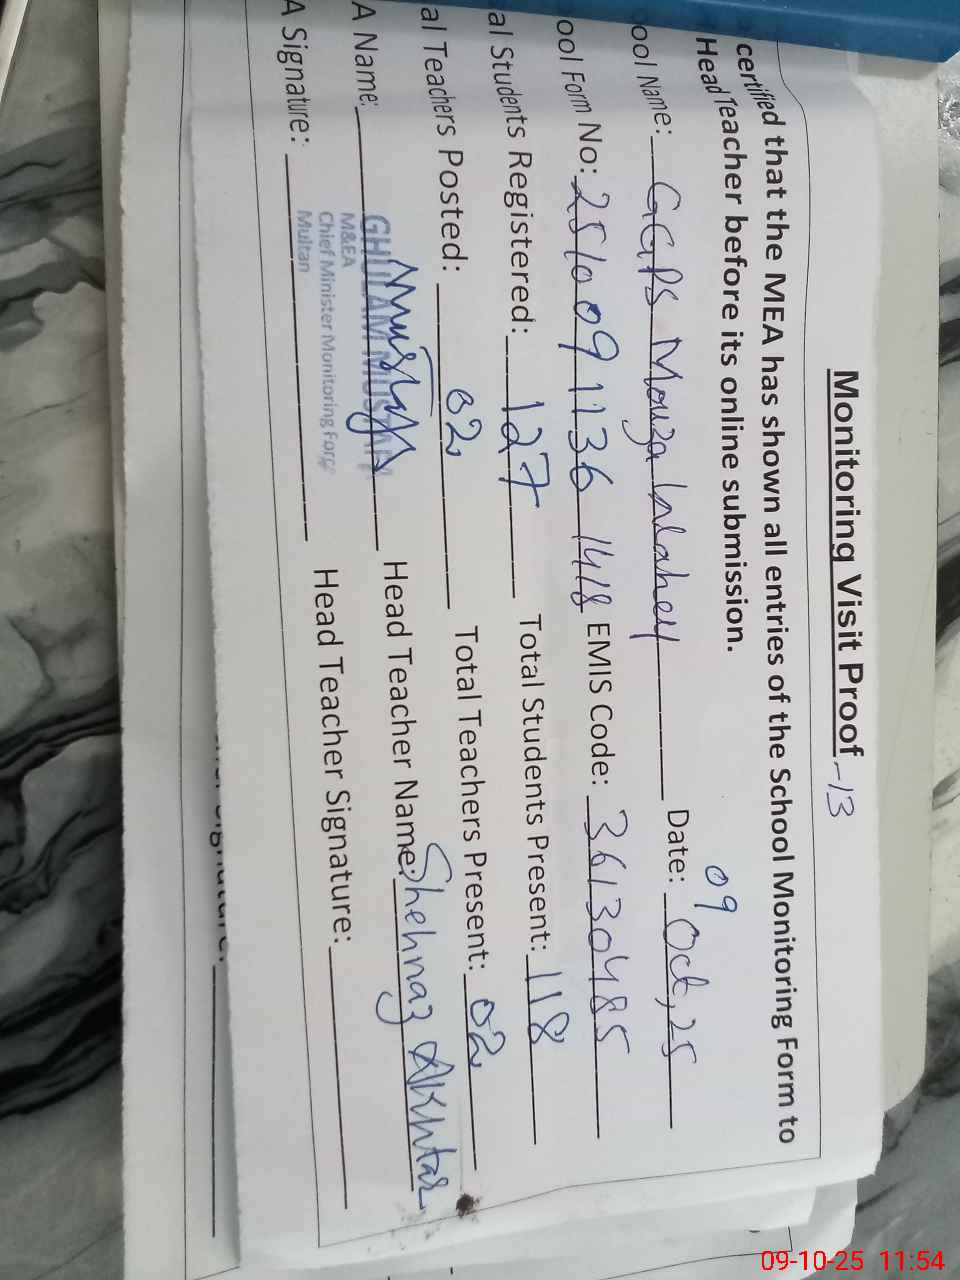 Monitoring Visit Proof -13
certified that the MEA has shown all entries of the School Monitoring Form to
Head Teacher before its online submission.
09
ool Name: GGPS Mouza Date: Oct, 25
ool Form No: 251009 1136 1418 EMIS Code: 36130485
al Students Registered: 127 Total Students Present: 118
al Teachers Posted: 02 Total Teachers Present: 02
A Name: GHULAM Head Teacher Name: Shehnaz Akhtar
M&EA
Chief Minister Monitoring Force
Multan
A Signature: Head Teacher Signature:
09-10-25 11:54